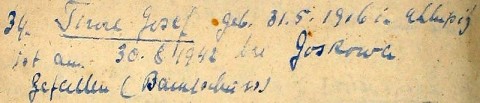 34. Josef geb. 31.5.1916 in
ist am 30.8.1942 bei Goskowa
Gefallen (Bauchschuss)